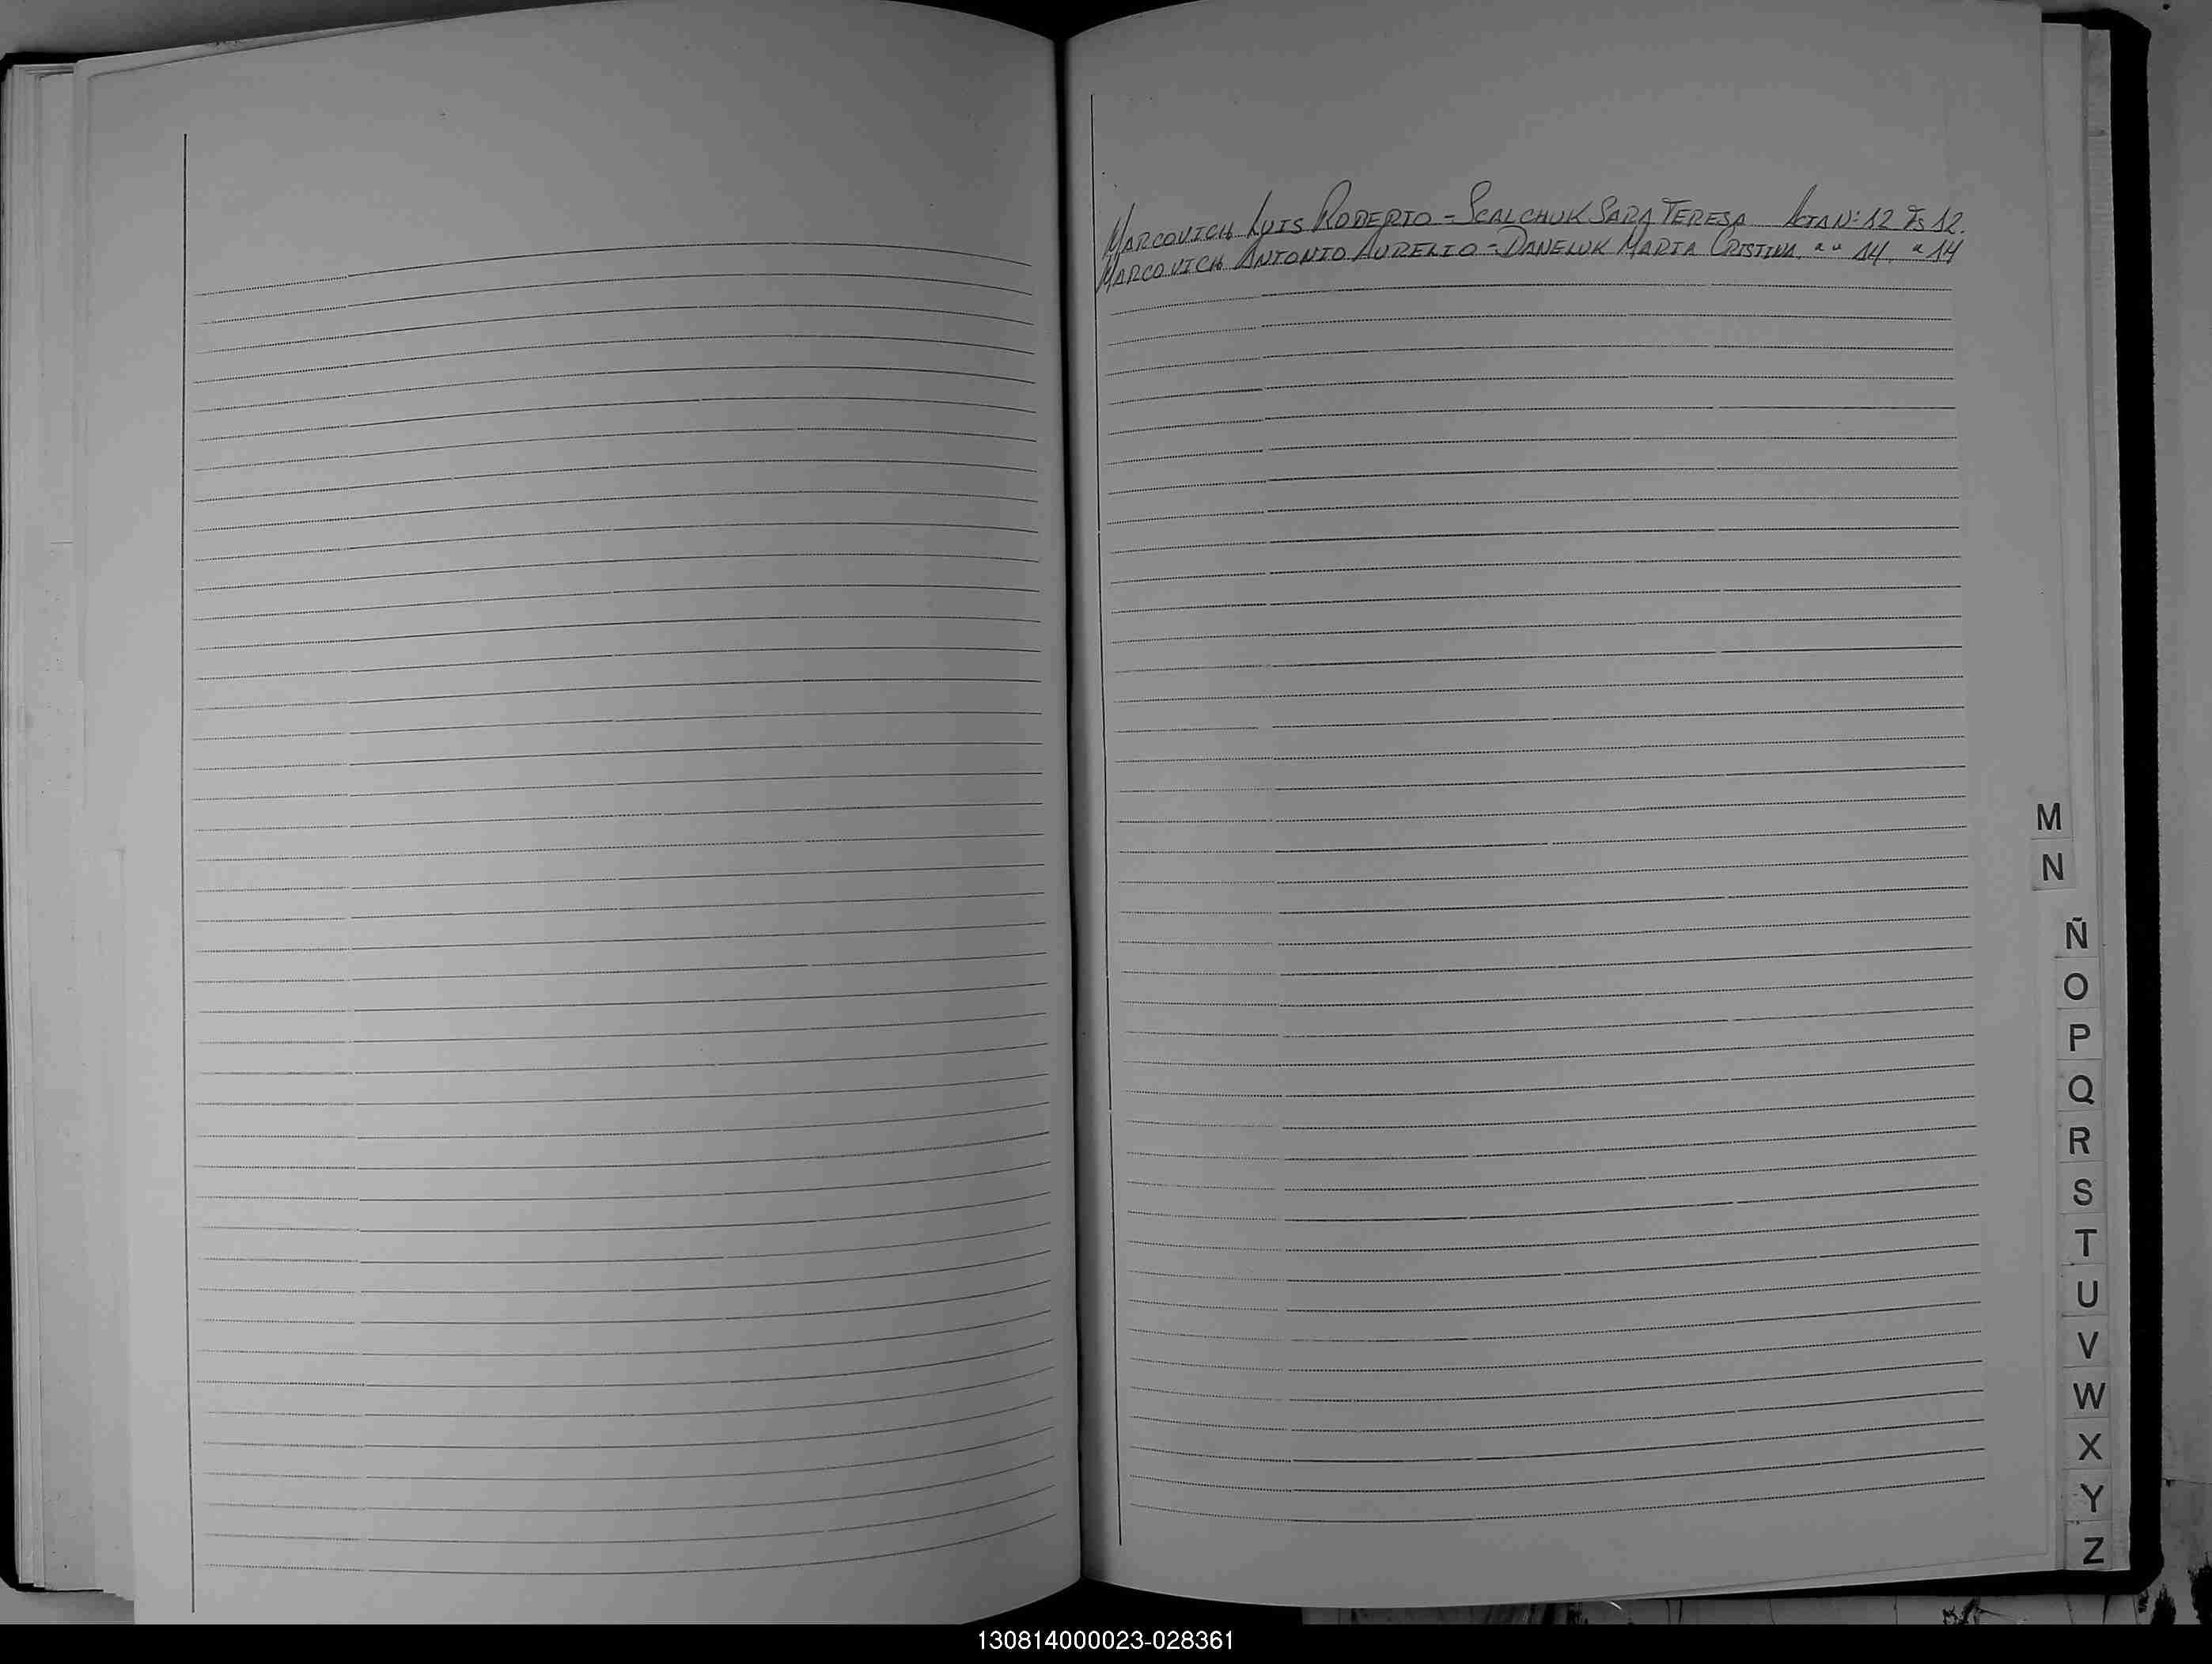 MARCOVICH LUIS ROBERTO = SCALCHUK SARA TERESA ACTA N: 12 Fs 12.
MARCOVICH ANTONIO AURELIO = DANELUK MARIA CRISTINA. " " 14. " 14
M
N
Ñ
O
P
Q
R
S
T
U
V
W
X
Y
Z
130814000023-028361